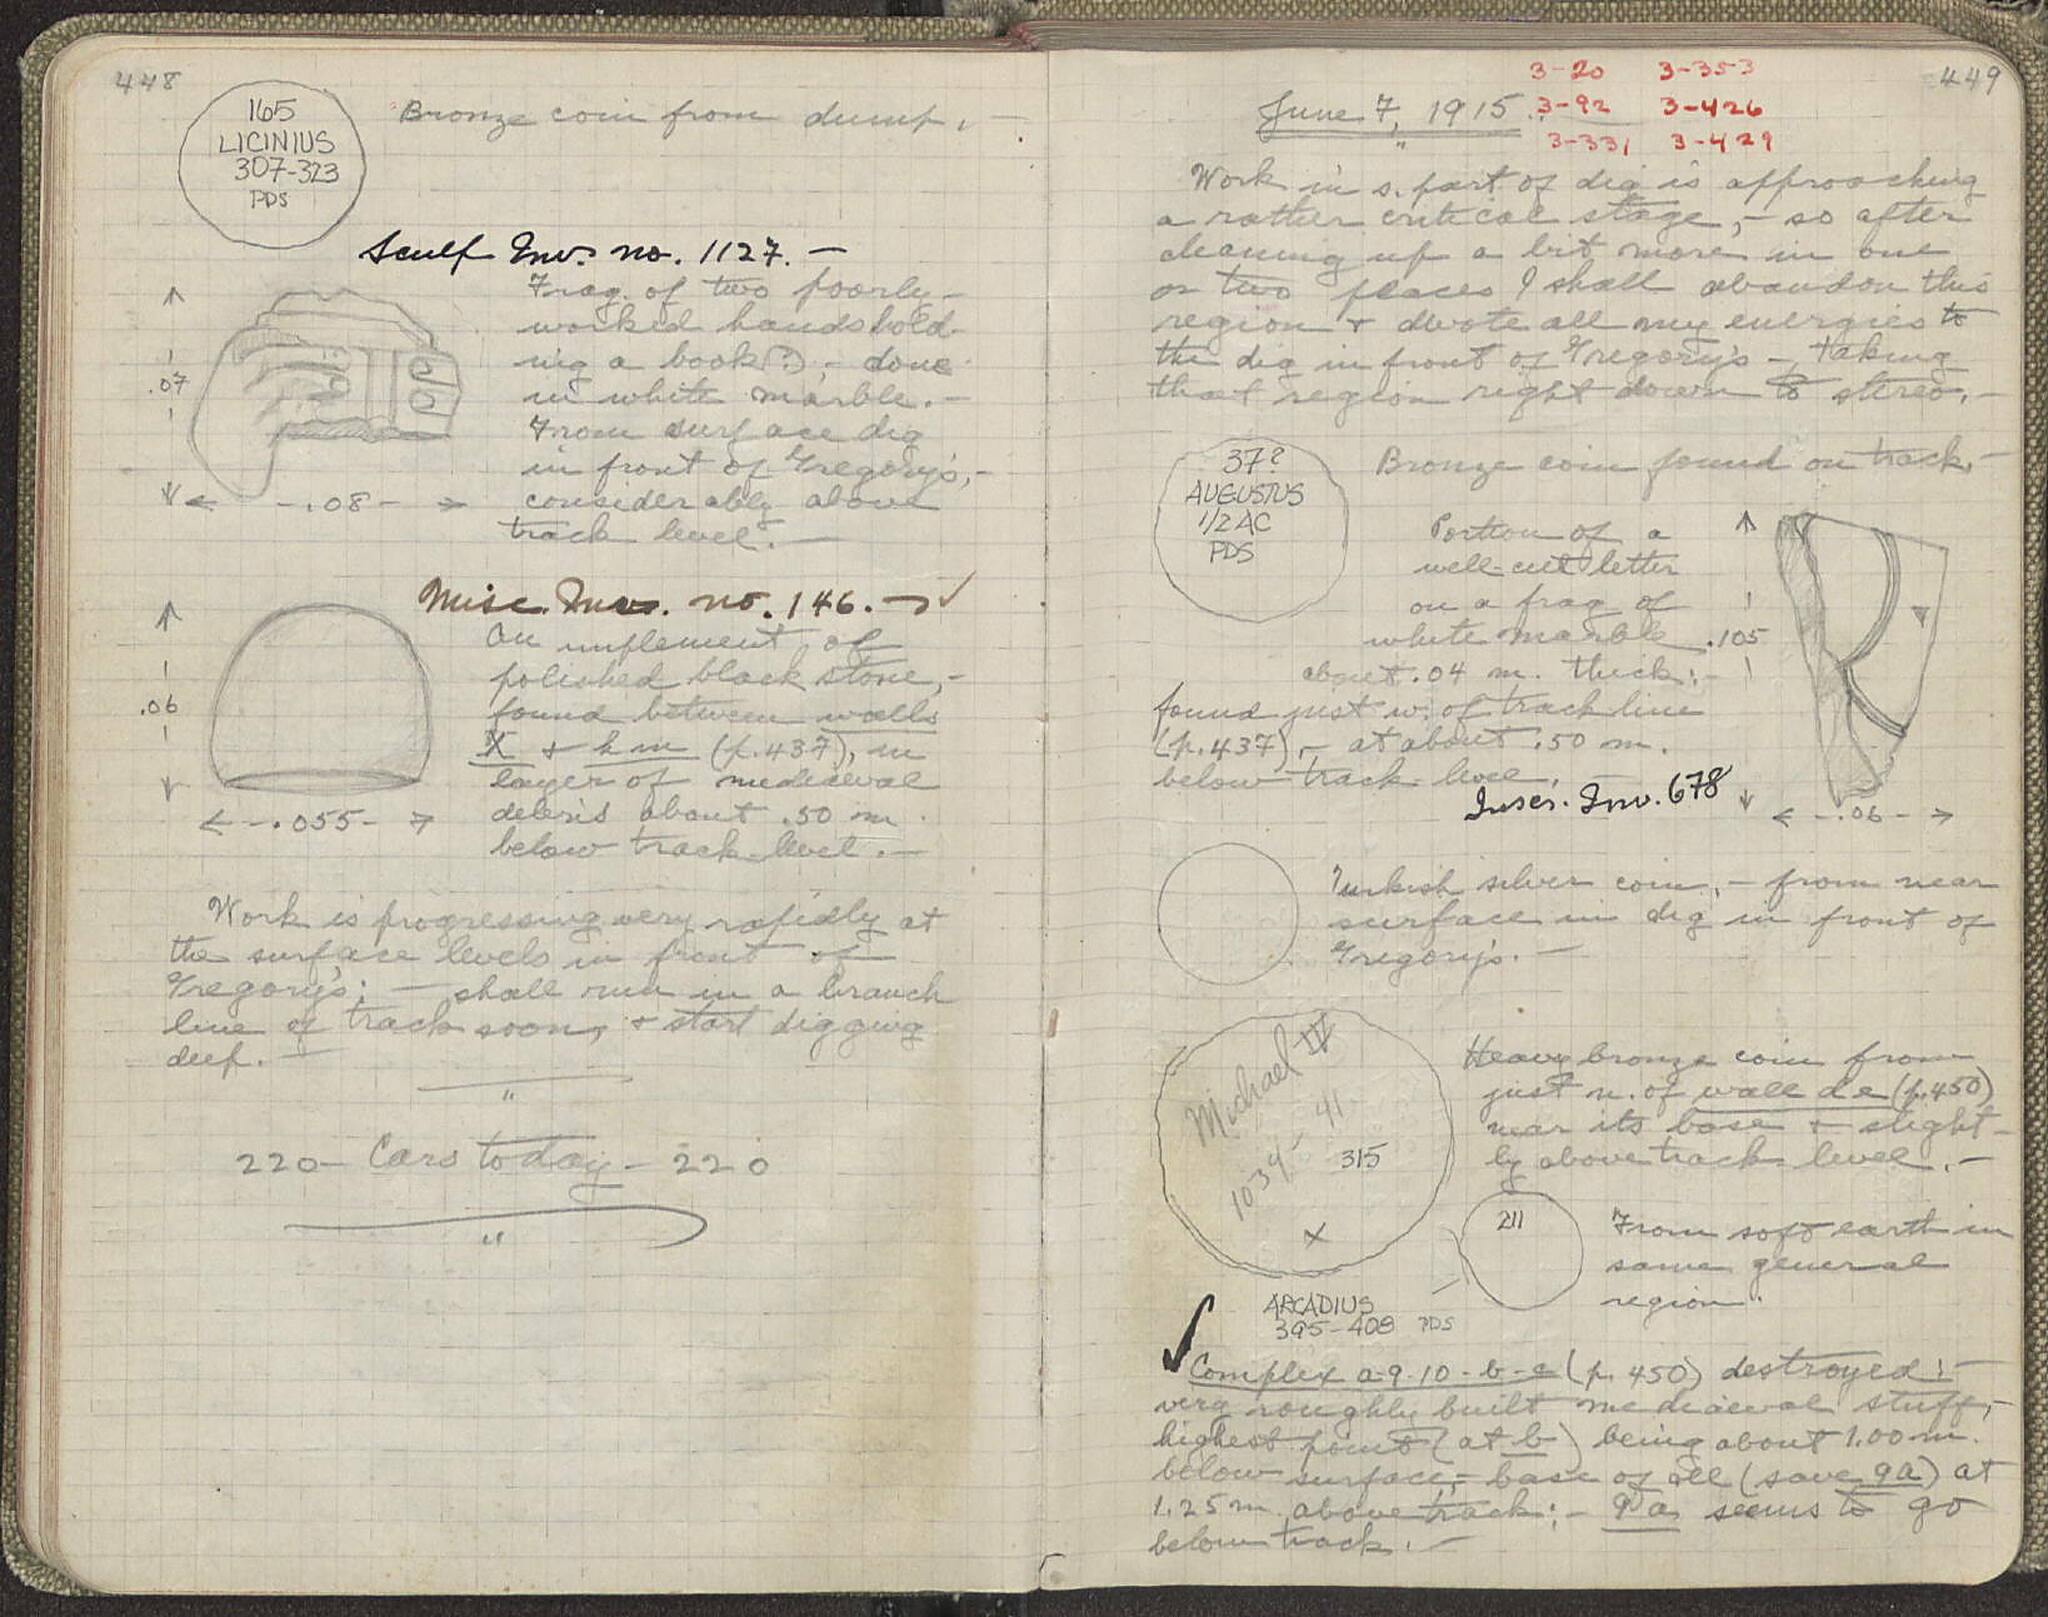 448
165
LICINIUS
307-323
PDS
Bronze coin from dump. –
Sculp Inv. no. 1127. –
Frag. of two poorly-
worked hands hold-
ing a book(?), – done
in white marble. –
From surface dig
in front of Gregory's, –
considerably above
track level. –
.07
← – .08 – →
Misc. Inv. no. 146. – ✓
An implement of
polished black stone, –
found between walls
X + h m (p. 437), in
layer of mediaeval
debris about .50 m.
below track-level. –
.06
← – .055 – →
Work is progressing very rapidly at
the surface levels in front of
Gregory's; – shall run in a branch
line of track soon, + start digging
deep. –
"
220 – Cars today – 220
"
449
3-20 3-353
3-92 3-426
3-331 3-429
June 7, 1915.
"
Work in s. part of dig is approaching
a rather critical stage, – so after
cleaning up a bit more in one
or two places I shall abandon this
region + devote all my energies to
the dig in front of Gregory's – taking
that region right down to stereo. –
37?
AUGUSTUS
1/2 AC
PDS
Bronze coin found on track. –
Portion of a
well-cut letter
on a frag of
white marble
about .04 m. thick; –
found just w. of track line
(p. 437), – at about .50 m.
below track-level. –
Inscr. Inv. 678
.105
← – .06 – →
Turkish silver coin, – from near
surface in dig in front of
Gregory's. –
Michael IV
1034 – 41
315
X
Heavy bronze coin from
just n. of wall d e (p. 450)
near its base + slight-
ly above track-level. –
211
From soft earth in
same general
region.
ARCADIUS
395-408 PDS
✓ Complex a-9-10-b-c (p. 450) destroyed: –
very roughly built mediaeval stuff, –
highest point (at b) being about 1.00 m.
below surface, – base of all (save 9a) at
1.25 m. above track; – 9a seems to go
below track. –